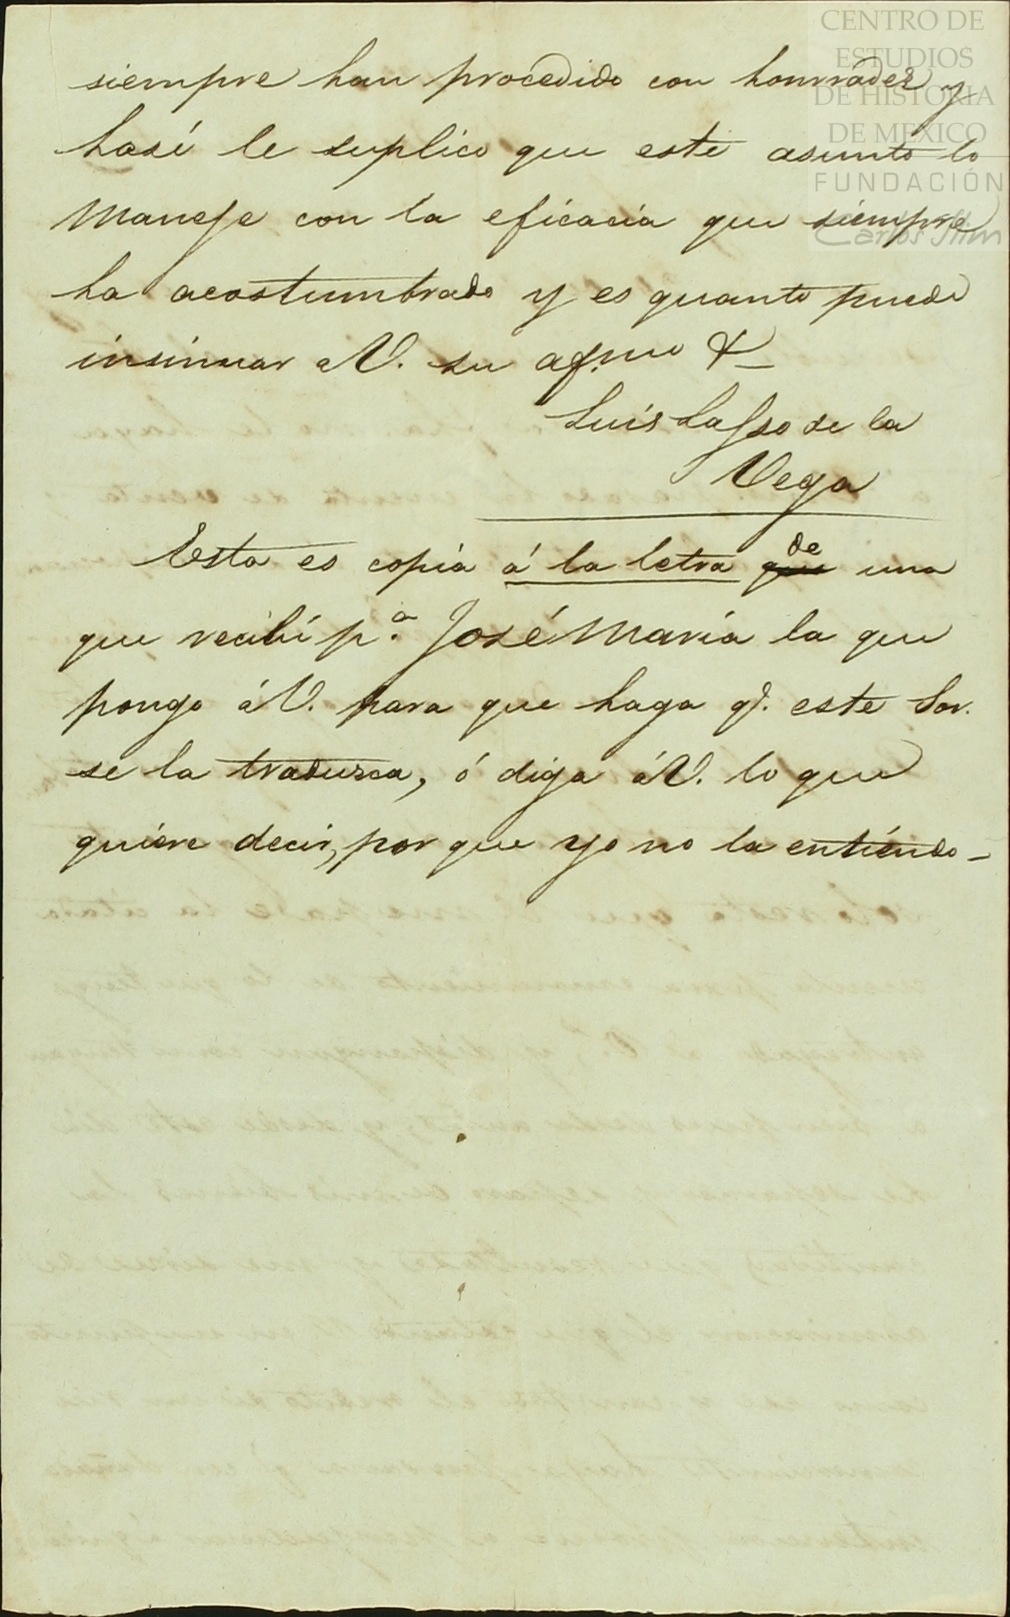 CENTRO DE
ESTUDIOS
DE HISTORIA
DE MEXICO
FUNDACIÓN
Carlos Slim
siempre han procedido con honrradez y
hasé le suplico que este asunto lo
Maneje con la eficacia que siempre
ha acostumbrado y es quanto puede
insinuar a V. su af.mo &
Luis Lasso de la
Vega
Esta es copia á la letra que de una
que recibí p.a José Maria la que
pongo á V. para que haga q.e este Sor.
se la tradusca, ó diga á V. lo que
quiere decir, por que yo no la entiendo_